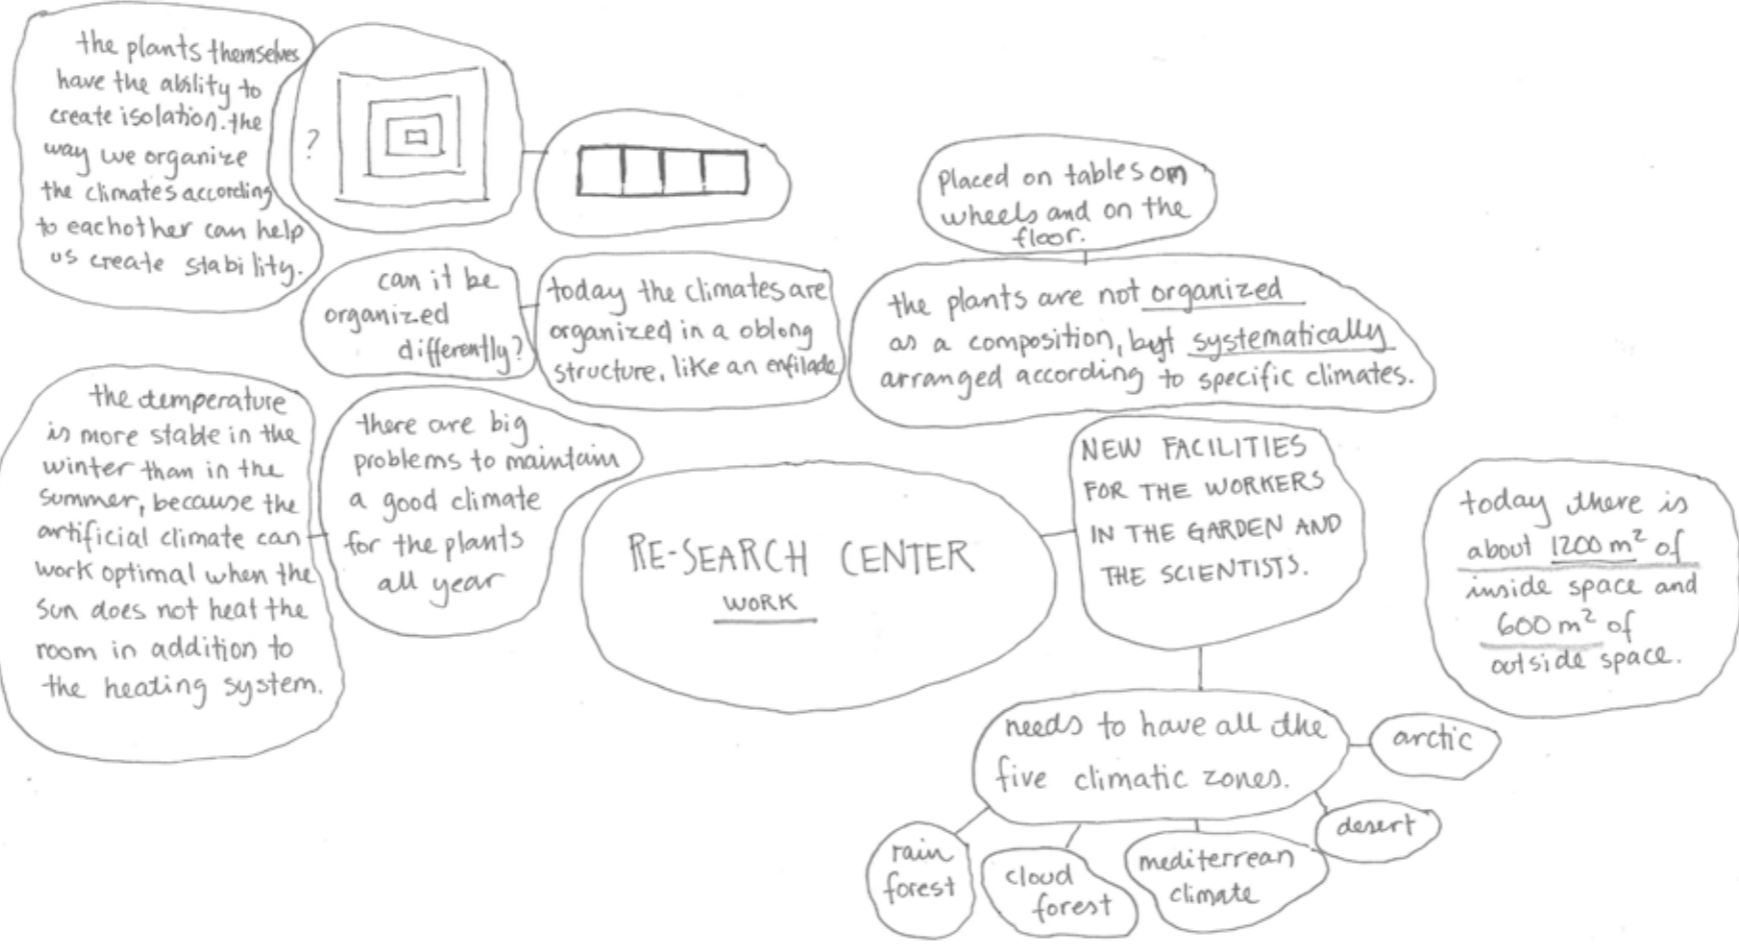 the plants themselves
have the ability to
create isolation. the
way we organize
the climates according
to eachother can help
us create stability.
?
can it be
organized
differently?
today the climates are
organized in a oblong
structure, like an enfilade
placed on tables on
wheels and on the
floor.
the plants are not organized
as a composition, byt systematically
arranged according to specific climates.
the temperature
is more stable in the
winter than in the
summer, because the
artificial climate can
work optimal when the
sun does not heat the
room in addition to
the heating system.
there are big
problems to maintain
a good climate
for the plants
all year
RE-SEARCH CENTER
WORK
NEW FACILITIES
FOR THE WORKERS
IN THE GARDEN AND
THE SCIENTISTS.
today there is
about 1200 m² of
inside space and
600 m² of
outside space.
needs to have all the
five climatic zones.
arctic
desert
mediterrean
climate
cloud
forest
rain
forest